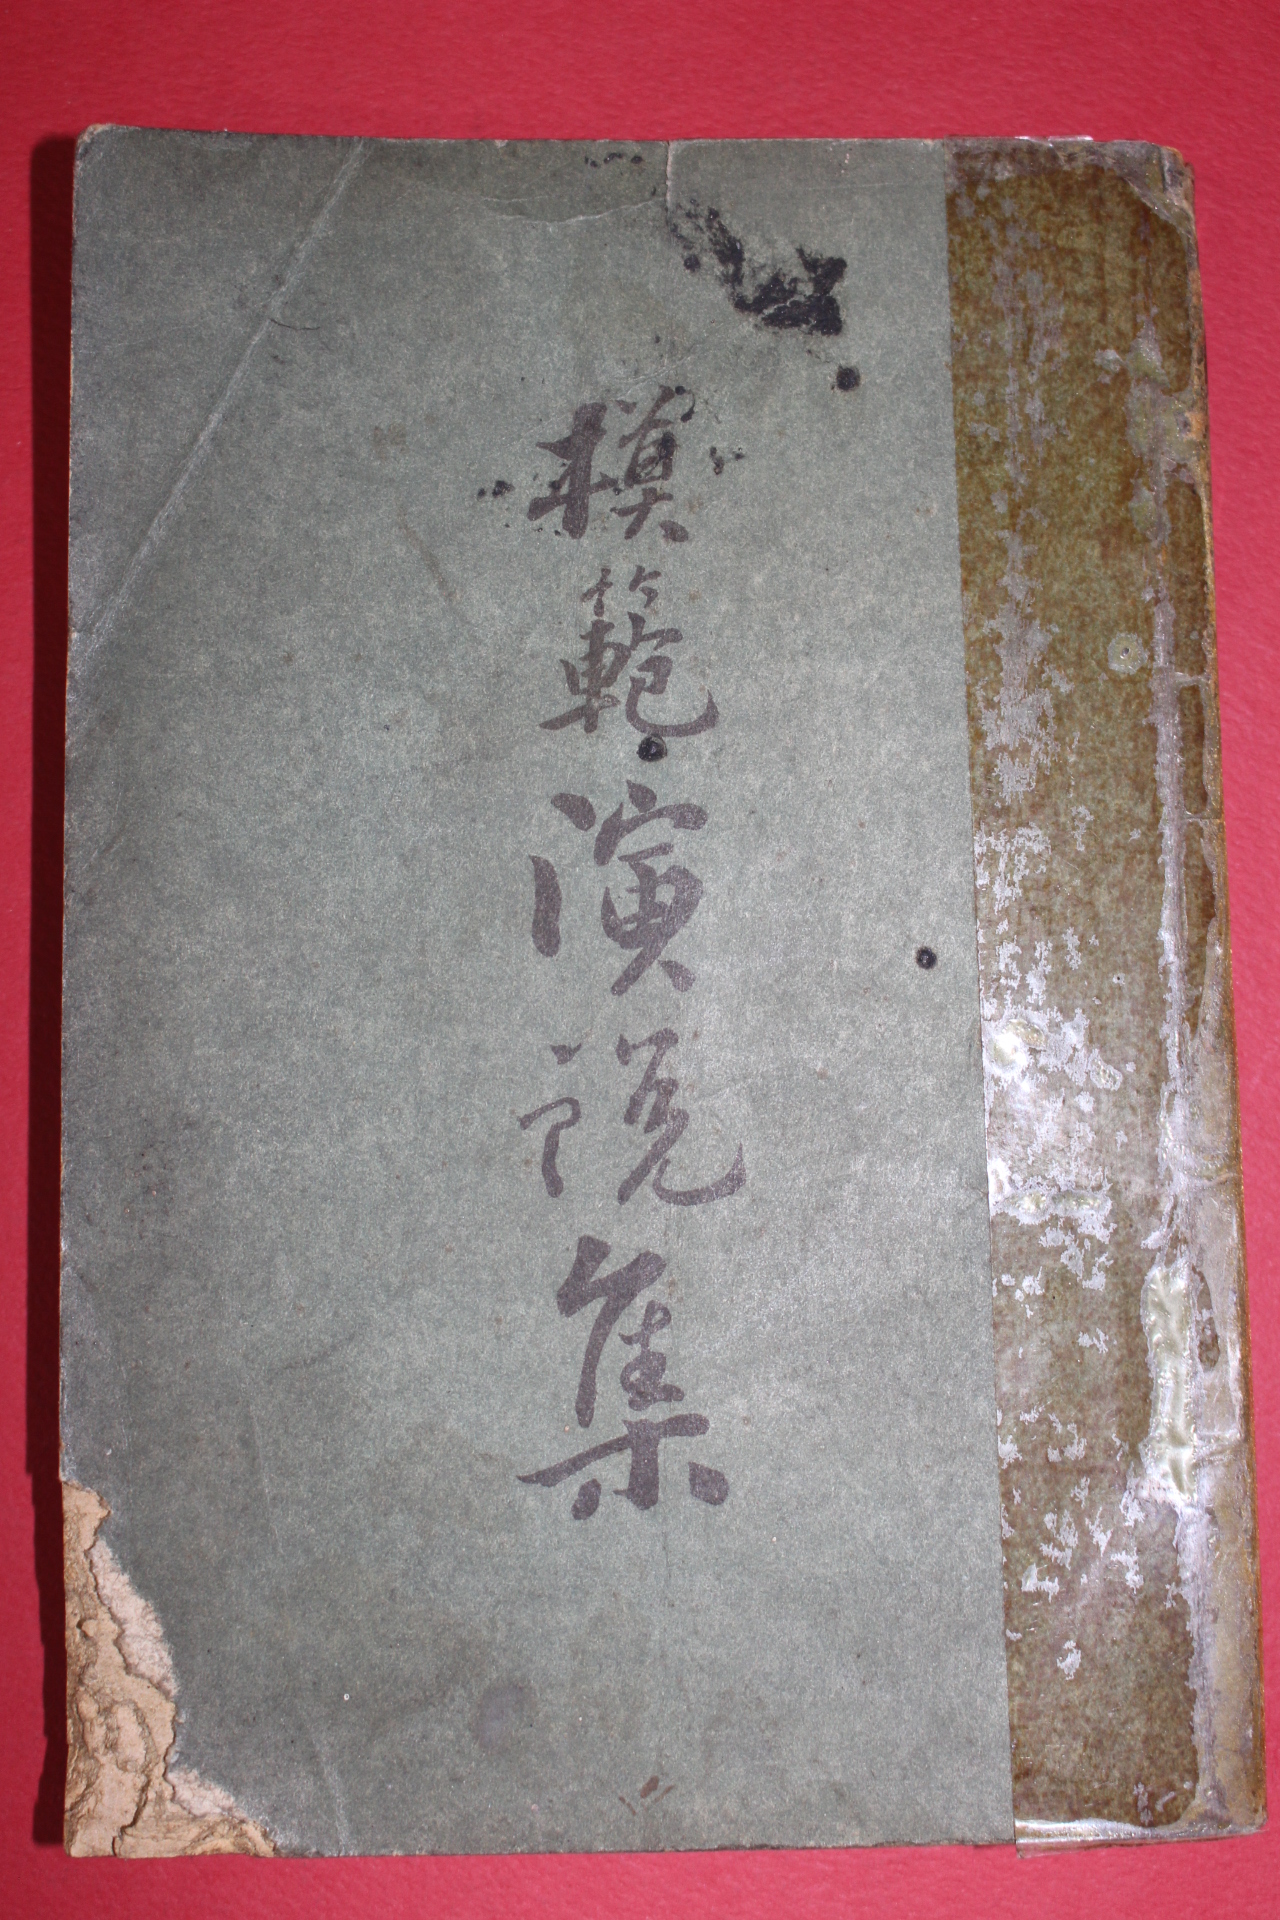 模範演説集